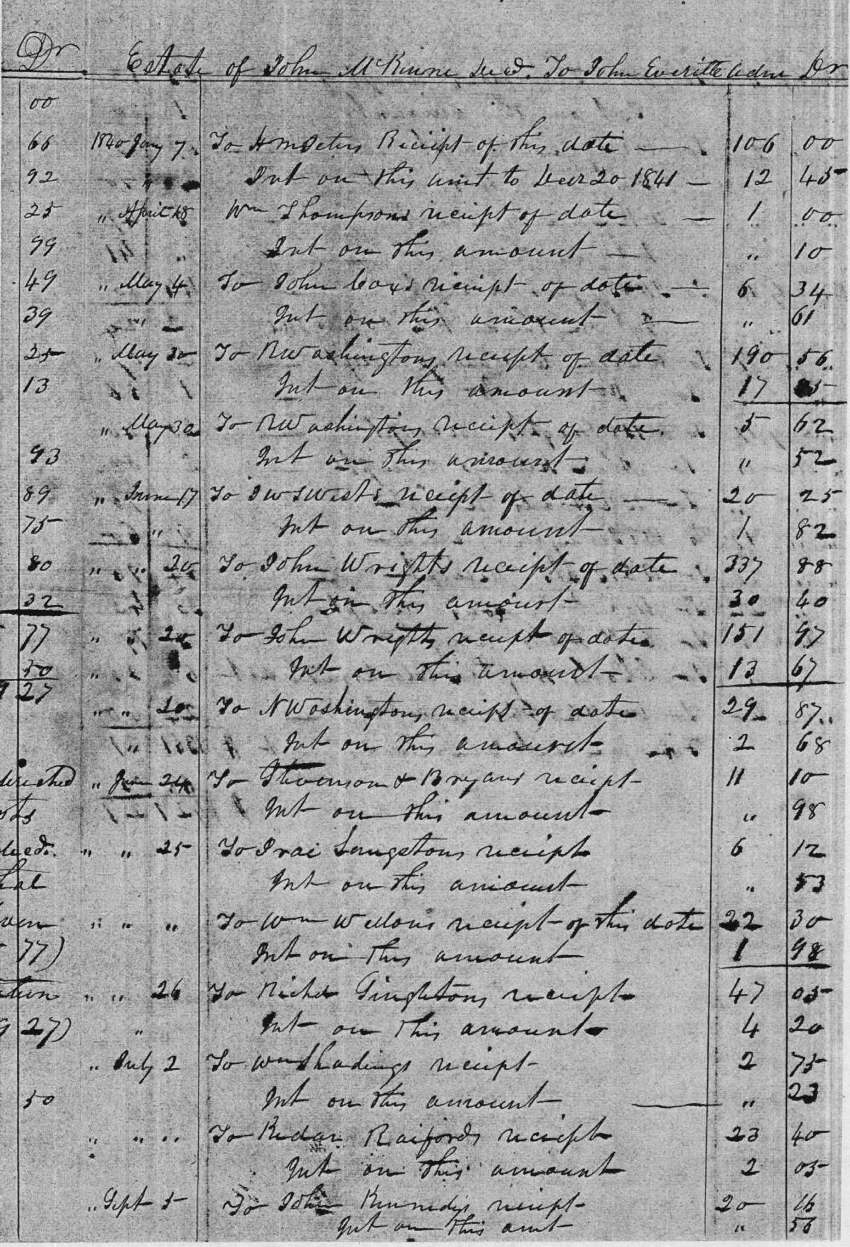 Dr Estate of John McKinne Decd. To John Everitt Adm Dr
00
66 1840 Jany 7 To H Peters Receipt of this date 106 00
92 " " Int on this amt to Decr 20 1841 12 45
25 " April 18 Wm Thompsons receipt of date 1 00
99 " Int on this amount " 10
49 " May 4 To John Coxs receipt of date 6 34
39 " Int on this amount " 61
25 " May 30 To R Washingtons receipt of date 190 56
13 Int on this amount 17 15
" May 30 To R Washingtons receipt of date 5 62
93 Int on this amount " 52
89 " June 17 To receipt of date 20 25
75 " Int on this amount 1 82
80 " " 20 To John Wrights receipt of date 337 88
32 Int on this amount 30 40
77 " " 20 To John Wrights receipt of date 151 97
50 " Int on this amount 13 67
27 " " 20 To N Washingtons receipt of date 29 87
" Int on this amount 2 68
" Jun 24 To Stevenson & Bryans receipt 11 10
Int on this amount " 98
Decd. " " 25 To Langstons receipt 6 12
Int on this amount " 53
" " " To Wm receipt of this date 22 30
77) Int on this amount 1 98
" " 26 To Richd Singletons receipt 47 05
27) " Int on this amount 4 20
" July 2 To Wm receipt 2 75
50 Int on this amount " 23
" " " To Kedar Raifords receipt 23 40
Int on this amount 2 05
" Sept 5 To John Kennedys receipt 20 16
Int on this amt " 56